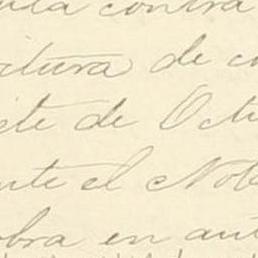 contra
itura de c
te de Octu
nte el Nota
obra en aut